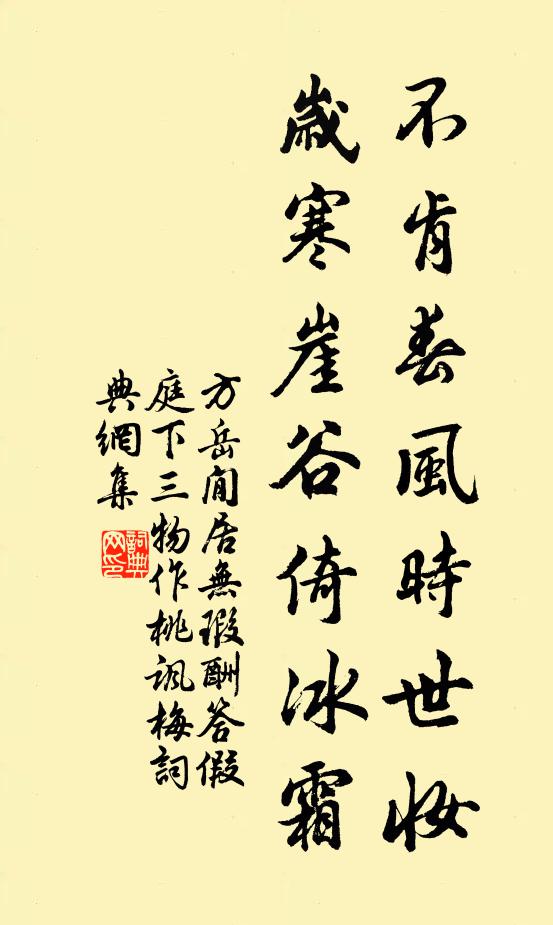 不肯春風時世妝
歲寒崖谷倚冰霜
方岳閒居無瑕酬答假
庭下三物作桃諷梅詞
典網集
詞典網印